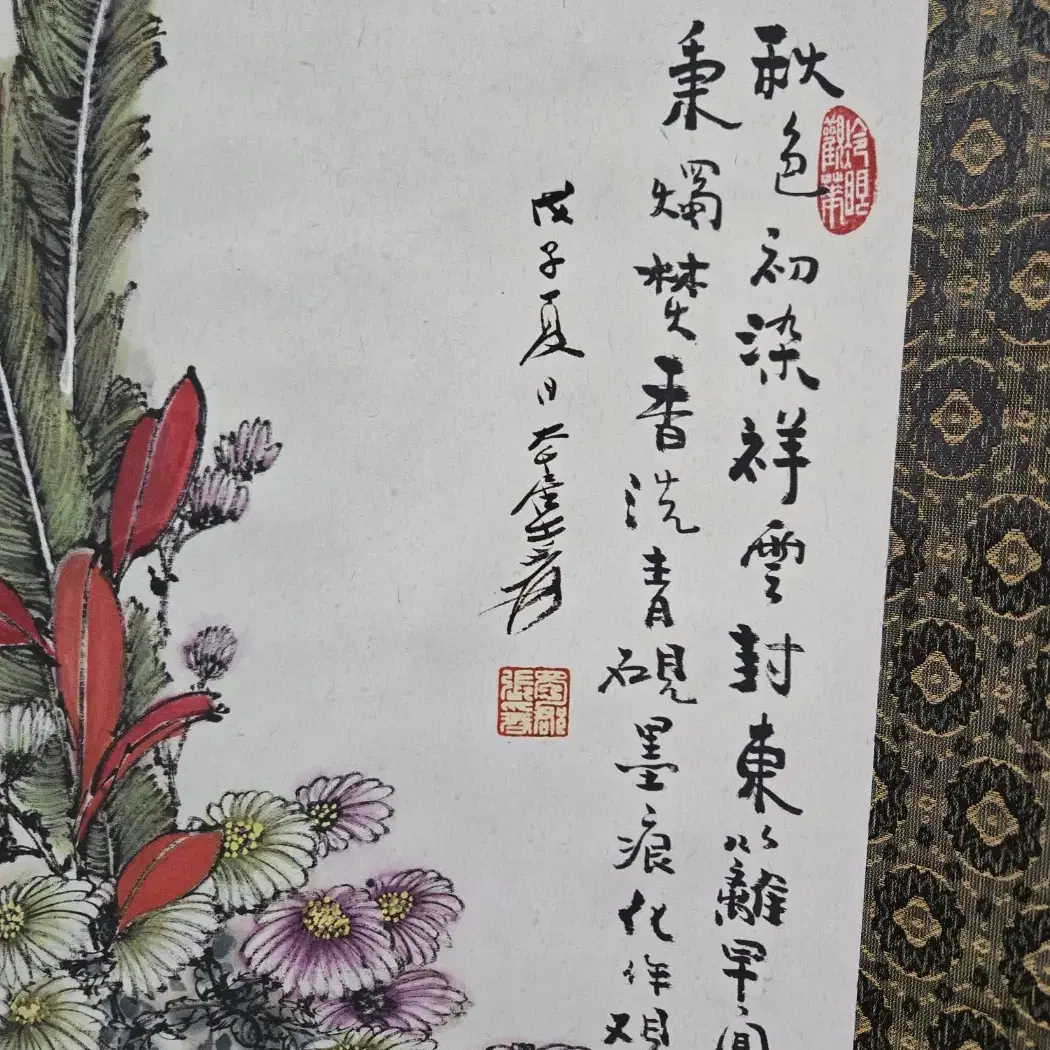 秋色初染祥雲封東籬早
秉燭焚香洗青硯墨痕化作
戊子夏日
冷眼觀